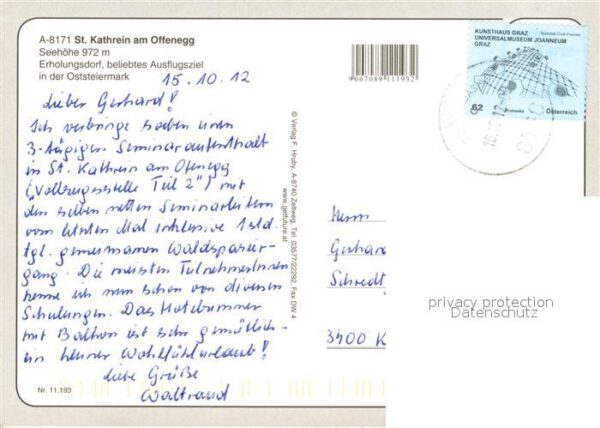 A-8171 St. Kathrein am Offenegg
Seehöhe 972 m
Erholungsdorf, beliebtes Ausflugsziel
in der Oststeiermark
15.10.12
Lieber Gerhard!
Ich verbringe soeben einen
3-tägigen Seminaraufenthalt
in St. Kathrein am Ofenegg
("Vollzugsstelle Teil 2") mit
den selben netten Seminarleitern
vom letzten Mal inklusive 1 std.
tgl. gemeinsamen Waldspazier-
gang. Die meisten TeilnehmerInnen
kenne ich nun schon von diversen
Schulungen. Das Hotelzimmer
mit Balkon ist sehr gemütlich-
ein kleiner Wohlfühlurlaub!
Liebe Grüße
Waltraud
Nr. 11.193
9007089111932
© Verlag F. Hruby, A-8740 Zeltweg, Tel. 03577/22292, Fax DW 4
www.getfuture.at
KUNSTHAUS GRAZ
UNIVERSALMUSEUM JOANNEUM
GRAZ
62
Österreich
Herrn
Gerhard
3400 K
privacy protection
Datenschutz